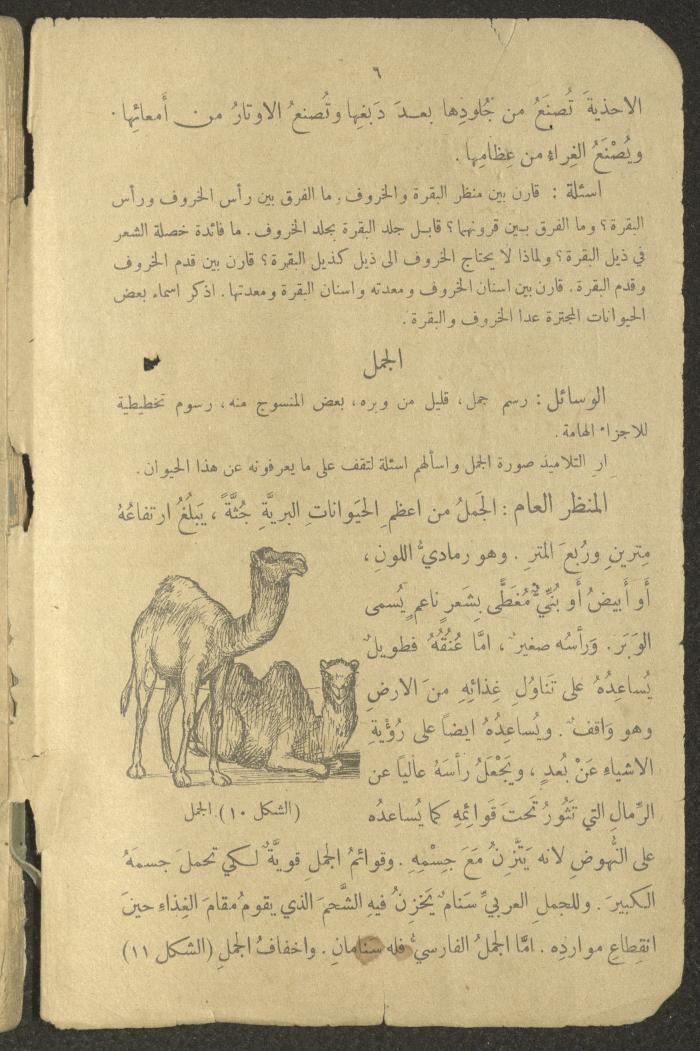 ٦
الاحذيةَ تُصنَعُ من جُلودِها بعـدَ دَبغِها وتُصنعُ الاوتارُ من أَمعائِها .
ويُصْنَعُ الغِراءِ من عِظامِها .
اسئلة : قارن بين منظر البقرة والخروف . ما الفرق بين رأس الخروف ورأس
البقرة ؟ وما الفرق بـين قرونهما ؟ قابـل جلد البقرة بجلد الخروف . ما فائدة خصلة الشعر
في ذيل البقرة ؟ ولماذا لا يحتاج الخروف الى ذيل كذيل البقرة ؟ قارن بين قدم الخروف
وقدم البقرة . قارن بين اسنان الخروف ومعدته واسنان البقرة ومعدتها . اذكر اسماء بعض
الحيوانات المجترة عدا الخروف والبقرة .
الجمل
الوسائل : رسم جمل ، قليل من وبره ، بعض المنسوج منه ، رسوم تخطيطية
للاجزاء الهامة .
ارِ التلاميذ صورة الجمل واسألهم اسئلة لتقف على ما يعرفونه عن هذا الحيوان .
المنظر العام : الجَملُ من اعظمِ الحيَواناتِ البريَّةِ جُثَّةً ، يَبلُغُ ارتفاعُهُ
مِترينِ ورُبعَ المترِ . وهو رماديُّ اللونِ ،
أَو أَبيضُ أَو بُنِّيٌّ مُغَطًّى بِشَعرٍ ناعمٍ يُسمى
الوَبَرَ . وَرأسُه صغيرٌ ، امَّا عُنُقُهُ فطويلٌ
يُساعِدُهُ على تَناوُلِ غِذائِهِ منَ الارضِ
وهو وَاقفٌ . ويُساعِدُهُ ايضاً على رُؤْيةِ
الاشياءِ عَنْ بُعدٍ ، ويَجْعَلُ رأسَهُ عالياً عن
الرِّمالِ التي تَثُورُ تَحتَ قَوائِمِهِ كما يُساعدُه
(الشكل ١٠) الجمل
على النُّهوضِ لانه يَتَّزِنُ مَعَ جِسْمِهِ . وقوائمُ الجمل قويَّةٌ لـكي تحملَ جسمَهُ
الكبيرَ . وللجملِ العربيِّ سَنامٌ يَخزِنُ فيهِ الشَّحمَ الذي يقومُ مقامَ الغِذاءِ حينَ
انقِطاعِ مواردِه . امَّا الجملُ الفارسيُّ فله سَنامانِ . واخفافُ الجملِ (الشكل ١١)